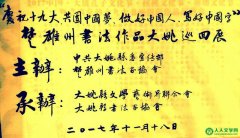 “庆祝十九大共圆中国梦，做好中国人，写好中国字”
楚雄州书法作品大姚巡回展
主辦：
中共大姚縣委宣传部
楚雄州书法家协會
承辦：
大姚縣文學藝術界聯合會
大姚縣书法家协會
二〇一七年十一月十八日
人人文学网